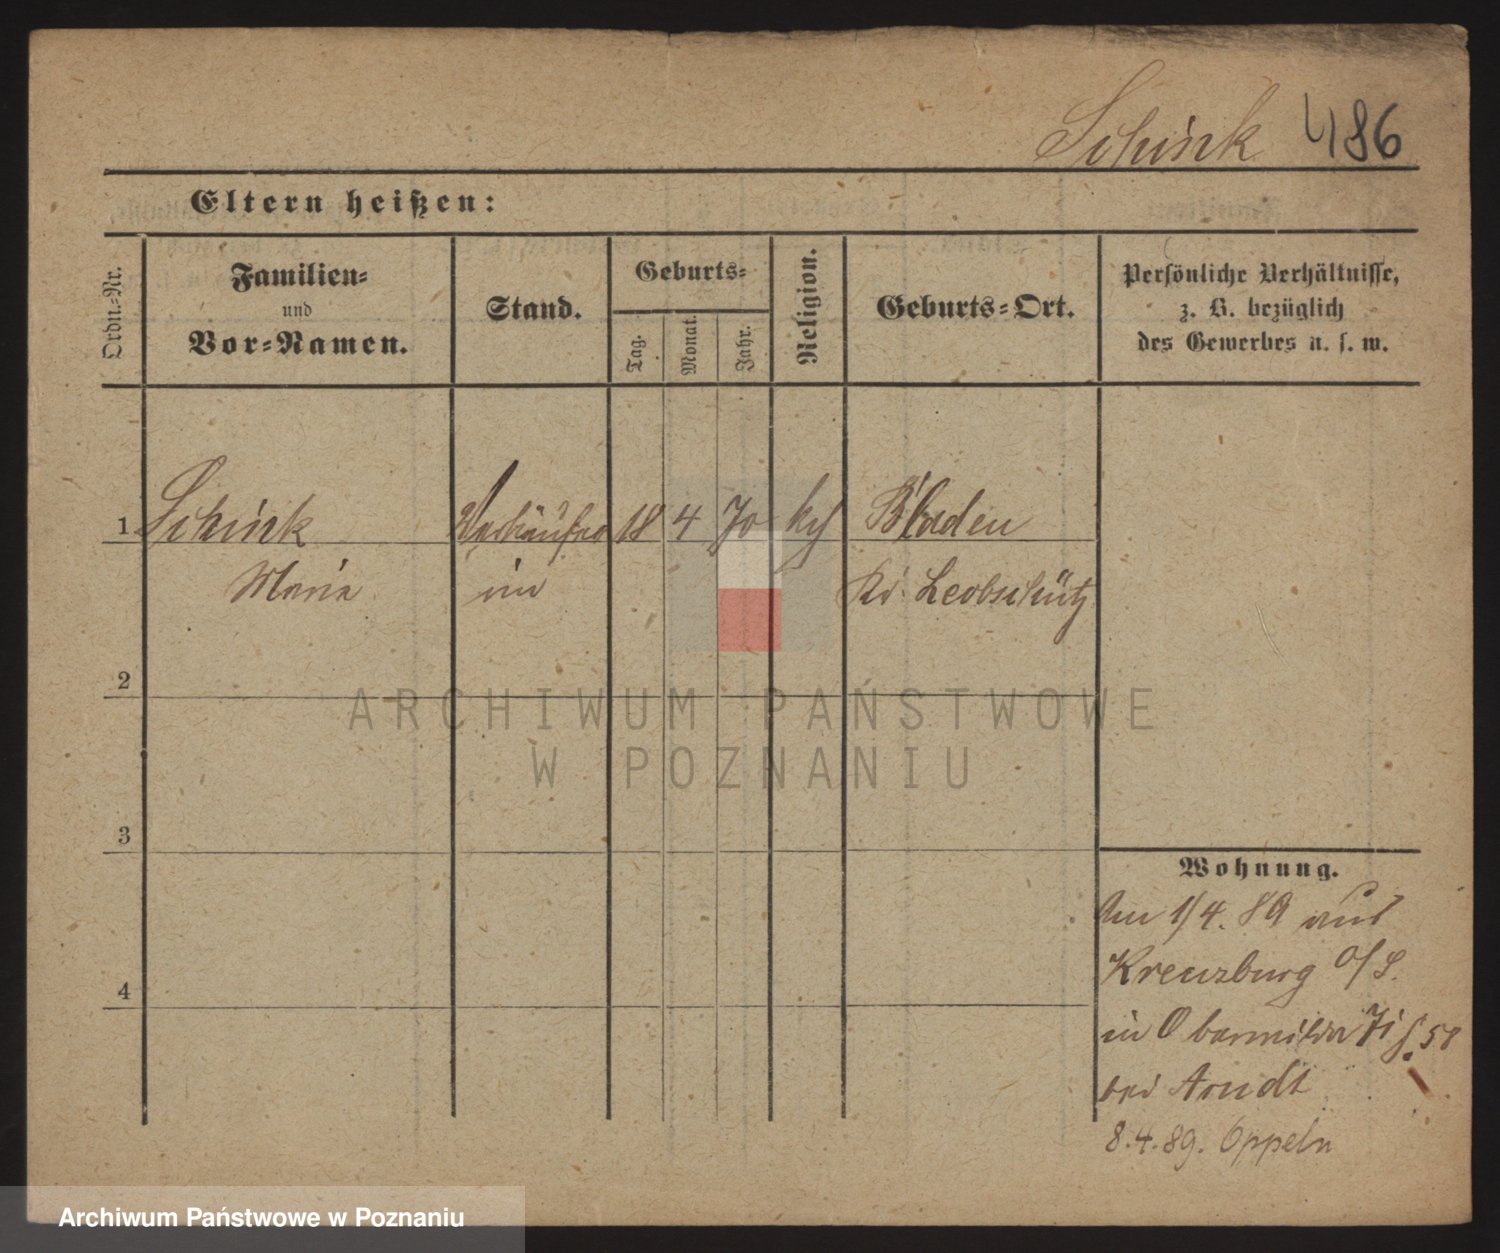 Schink 486
Eltern heißen:
Ordn.-Nr.
Familien-
und
Vor-Namen.
Stand.
Geburts-
Tag.
Monat.
Jahr.
Religion.
Geburts-Ort.
Persönliche Verhältnisse,
z. B. bezüglich
des Gewerbes u. s. w.
1 Schink Verkäufer 18 4 70 Bladen
Marie in Kr. Leobschütz
2
3
4
Wohnung.
Am 1/4. 89 aus
Kreuzburg O/S.
in
bei Arndt
8.4.89. Oppeln
ARCHIWUM PAŃSTWOWE
W POZNANIU
Archiwum Państwowe w Poznaniu